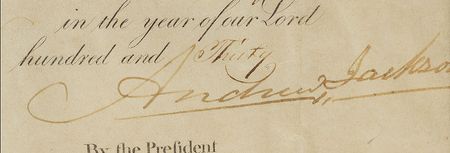 in the year of our Lord
hundred and Thirty
Andrew Jackso
By the President